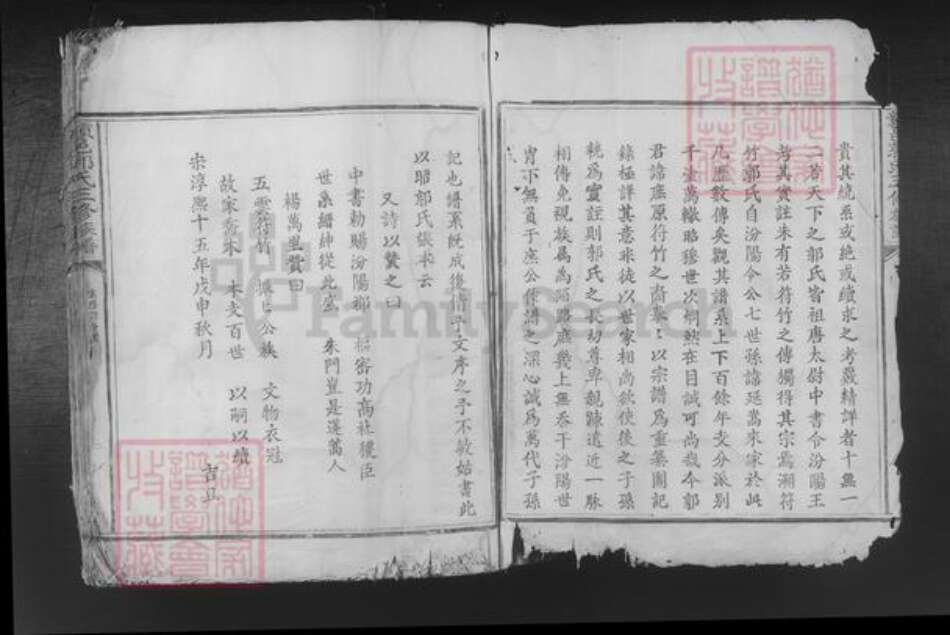 貴其統系或絕或續求之考覈精詳者十無一
二若天下之郭氏皆祖唐太尉中書令汾陽王
考其實註未有若符竹之傳獨得其宗焉溯符
竹郭氏自汾陽令公七世孫諱延嵩來家於此
凡歷數傳矣觀其譜系上下百餘年支分派別
千塗萬轍昭穆世次炯然在目誠可尚哉今郭
君諱 原符竹之裔 以宗譜為重纂圖記
錄極詳其意非徒以世家相尚欲使後之子孫
執為實註則郭氏之長幼尊卑親疎遠近一脉
相傳免視族屬為陌路庶幾上無忝于汾陽世
冑下無負于 公修譜之深心誠為萬代子孫
記也譜系既成復倩予文序之予不敏始書此
以昭郭氏張本云
又詩以贊之曰
中書勅賜汾陽郡 樞密功高社稷臣
世系縉紳從此盛 朱門豈是蓬蒿人
楊萬里贊曰
五雲符竹 公族 文物衣冠
故家喬木 本支百世 以嗣以續
宋淳熈十五年戊申秋月 吉旦
郭氏三修族譜
FamilySearch
譜學會
收藏
譜學會
收藏